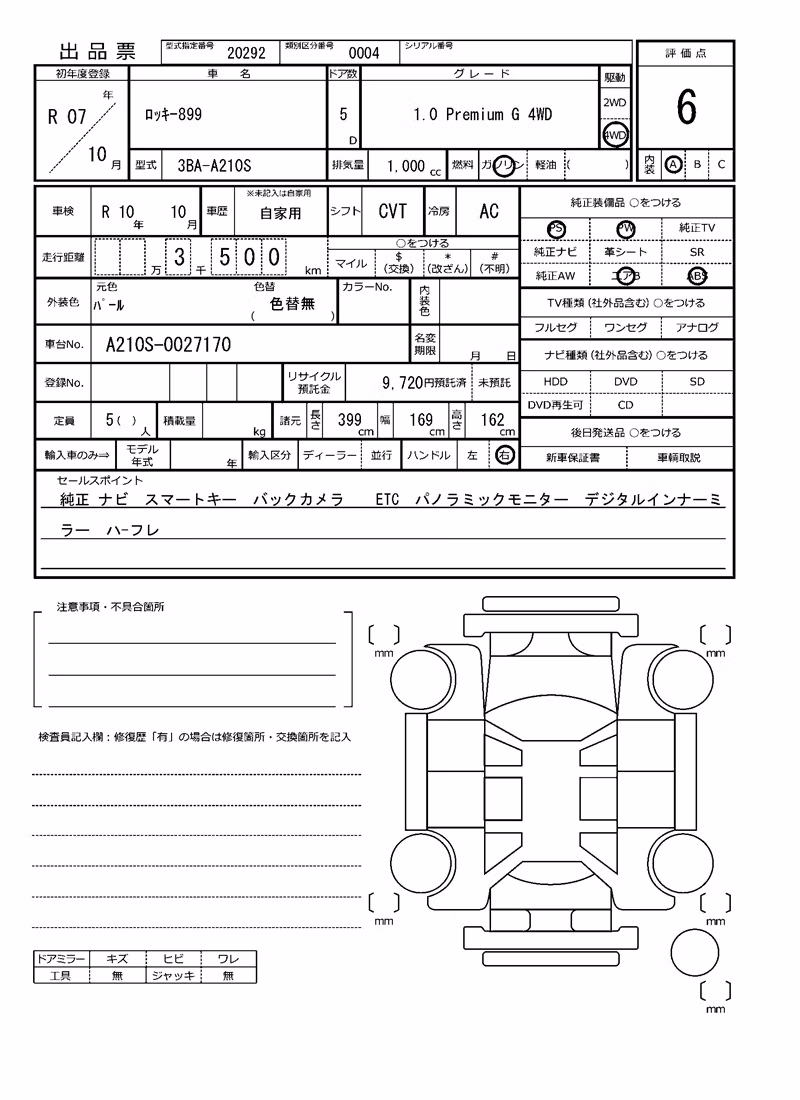 出品票 型式指定番号 20292 類別区分番号 0004 シリアル番号
評価点
6
内装 A B C
初年度登録 車名 ドア数 グレード 駆動
R 07 年 10 月 ﾛｯｷｰ899 5 D 1.0 Premium G 4WD 2WD 4WD
型式 3BA-A210S 排気量 1,000 cc 燃料 ガソリン 軽油 ( )
※未記入は自家用
車検 R 10 年 10 月 車歴 自家用 シフト CVT 冷房 AC
走行距離 万 3 千 5 0 0 km
○をつける
マイル $ (交換) * (改ざん) # (不明)
外装色 元色 ﾊﾟｰﾙ 色替 ( 色替無 ) カラーNo. 内装色
車台No. A210S-0027170 名変期限 月 日
登録No. リサイクル預託金 9,720円預託済 未預託
定員 5( ) 人 積載量 kg 諸元 長さ 399 cm 幅 169 cm 高さ 162 cm
輸入車のみ⇒ モデル年式 年 輸入区分 ディーラー 並行 ハンドル 左 右
純正装備品 ○をつける
PS PW 純正TV
純正ナビ 革シート SR
純正AW エアB ABS
TV種類 (社外品含む) ○をつける
フルセグ ワンセグ アナログ
ナビ種類 (社外品含む) ○をつける
HDD DVD SD
DVD再生可 CD
後日発送品 ○をつける
新車保証書 車輌取説
セールスポイント
純正 ナビ スマートキー バックカメラ ETC パノラミックモニター デジタルインナーミ
ラー ハーフレ
注意事項・不具合箇所
検査員記入欄：修復歴「有」の場合は修復箇所・交換箇所を記入
ドアミラー キズ ヒビ ワレ
工具 無 ジャッキ 無
mm
mm
mm
mm
mm